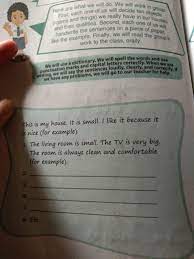 Here are what we will do. We will work in group.
First, each one of us will decide ten objects
(rooms and things) we really have in our house
and their qualities. Second, each one of us will
handwrite the sentences on a piece of paper,
like the example. Finally, we will read the group
work to the class, orally.
We will use a dictionary. We will spell the words and use
punctuation marks and capital letters correctly. When we are
reading, we will say the sentences loudly, clearly, and correctly. If
we have any problems, we will go to our teacher for help.
This is my house. It is small. I like it because it
is nice (for example)
1. The living room is small. The TV is very big.
The room is always clean and comfortable
(for example).
2.
3.
4.
5.
6. Etc.